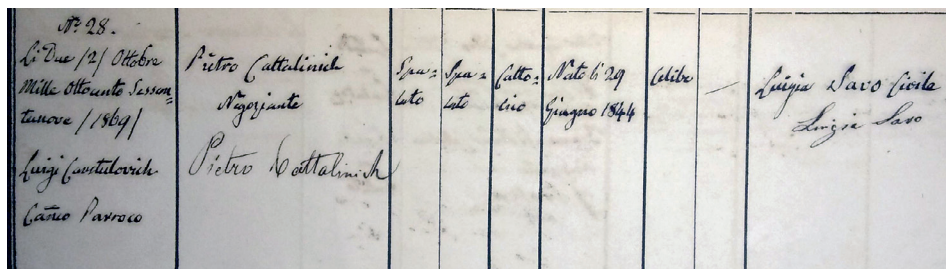 No 28.
Li Due /2/ Ottobre
Mille Ottocento Sessan=
tanove /1869/
Luigi
Can.co Parroco
Pietro Cattalinich
Negoziante
Pietro Cattalinich
Spa=
lato
Spa=
lato
Catto=
lico
Nato li 29
Giugno 1844
Celibe
—
Luigia Savo Civile
Luigia Savo